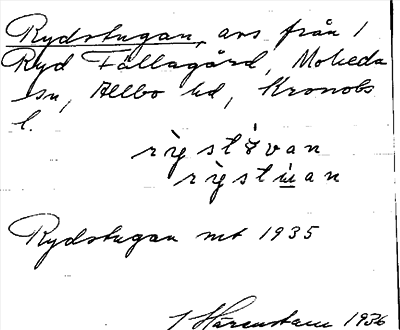 Rydstugan, avs från 1
Ryd Fällagård, Moheda
sn, Allbo hd, Kronobs
l.
rỳstúvan
rỳstuan
Rydstugan mt 1935
J Härenstam 1936